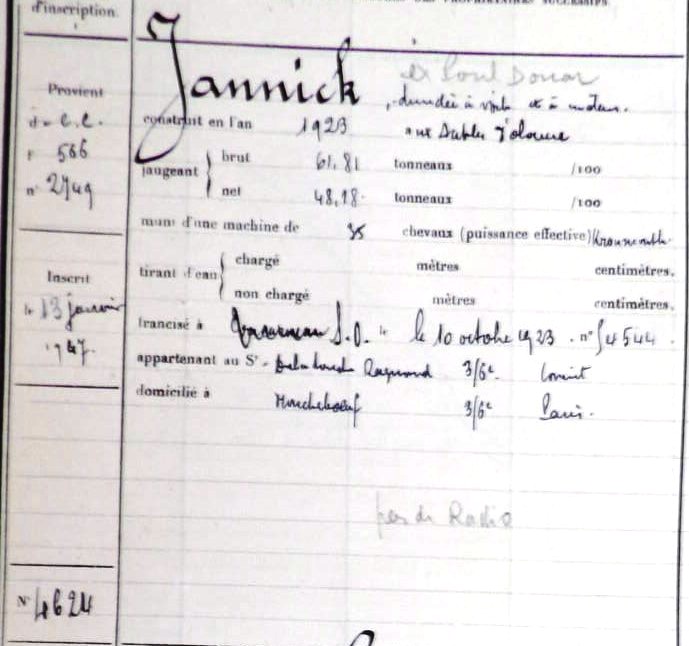 d'inscription
DES PROPRIÉTAIRES SUCCESSIFS
Jannick
Provient
à moteur.
construit en l'an 1923 aux Sables d'olonne
d
566
n° 2749
jaugeant brut 61,81 tonneaux /100
net 48,18 tonneaux /100
muni d'une machine de 35 chevaux (puissance effective)
Inscrit
le 13 janvier
1947.
tirant d'eau chargé mètres centimètres.
non chargé mètres centimètres.
francisé à S.O. le le 10 octobre 1923. n°
appartenant au Sr. Raymond 3/6e Lorient
domicilié à 3/6e Paris.
pas de Radio
N° 4624